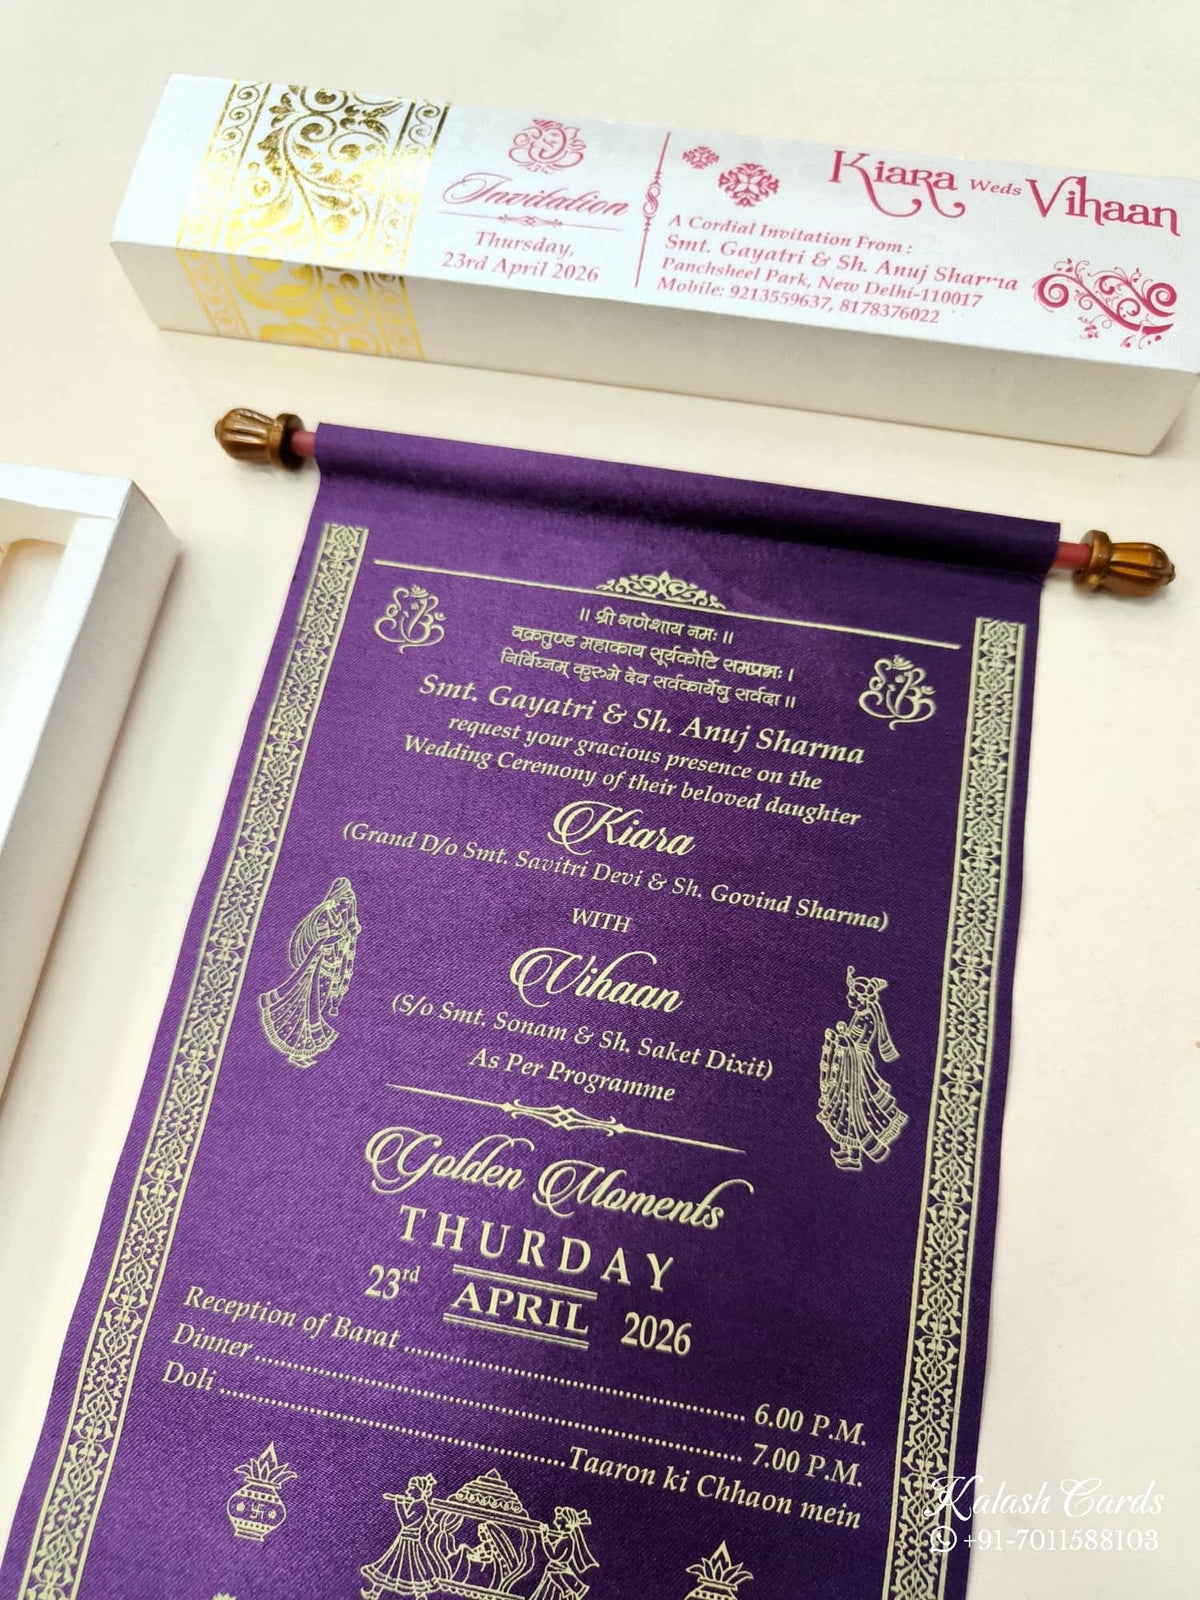 Invitation
Thursday,
23rd April 2026
Kiara Weds Vihaan
A Cordial Invitation From :
Smt. Gayatri & Sh. Anuj Sharma
Panchsheel Park, New Delhi-110017
Mobile: 9213559637, 8178376022
॥ श्री गणेशाय नमः ॥
वक्रतुण्ड महाकाय सूर्यकोटि समप्रभः।
निर्विघ्नम् कुरुमे देव सर्वकार्येषु सर्वदा॥
Smt. Gayatri & Sh. Anuj Sharma
request your gracious presence on the
Wedding Ceremony of their beloved daughter
Kiara
(Grand D/o Smt. Savitri Devi & Sh. Govind Sharma)
WITH
Vihaan
(S/o Smt. Sonam & Sh. Saket Dixit)
As Per Programme
Golden Moments
THURDAY
23rd APRIL 2026
Reception of Barat ........................................ 6.00 P.M.
Dinner ........................................ 7.00 P.M.
Doli ........................................ Taaron ki Chhaon mein
Kalash Cards
+91-7011588103